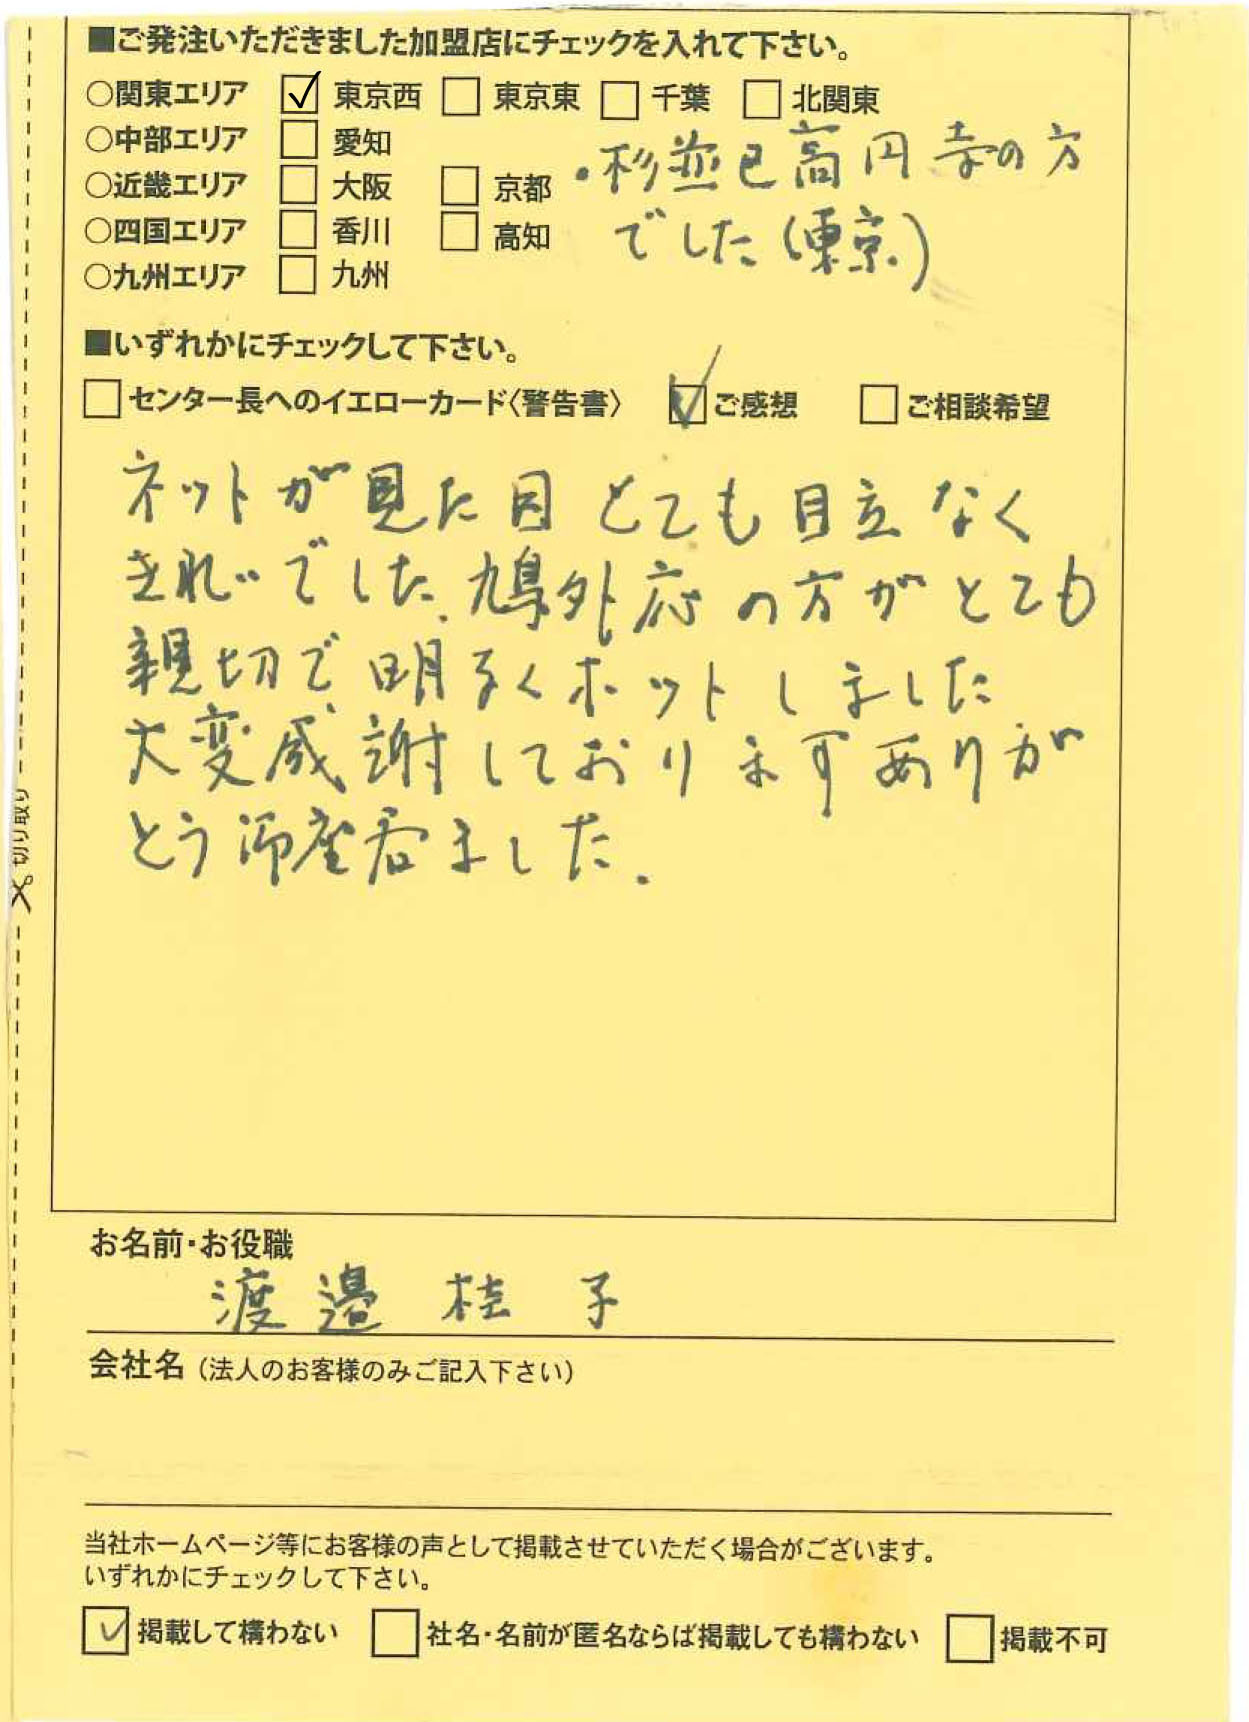 ■ご発注いただきました加盟店にチェックを入れて下さい。
○関東エリア ☑ 東京西 □ 東京東 □ 千葉 □ 北関東
○中部エリア □ 愛知
○近畿エリア □ 大阪 □ 京都
・杉並区高円寺の方
○四国エリア □ 香川 □ 高知
でした(東京)
○九州エリア □ 九州
■いずれかにチェックして下さい。
□センター長へのイエローカード〈警告書〉 ☑ご感想 □ご相談希望
ネットが見た目とても目立なく
きれいでした。鳩対応の方がとても
親切で明るくホットしました
大変感謝しておりますありが
とう御座居ました.
切り取り
お名前・お役職
渡邉 桂子
会社名(法人のお客様のみご記入下さい)
当社ホームページ等にお客様の声として掲載させていただく場合がございます。
いずれかにチェックして下さい。
☑掲載して構わない □社名・名前が匿名ならば掲載しても構わない □掲載不可